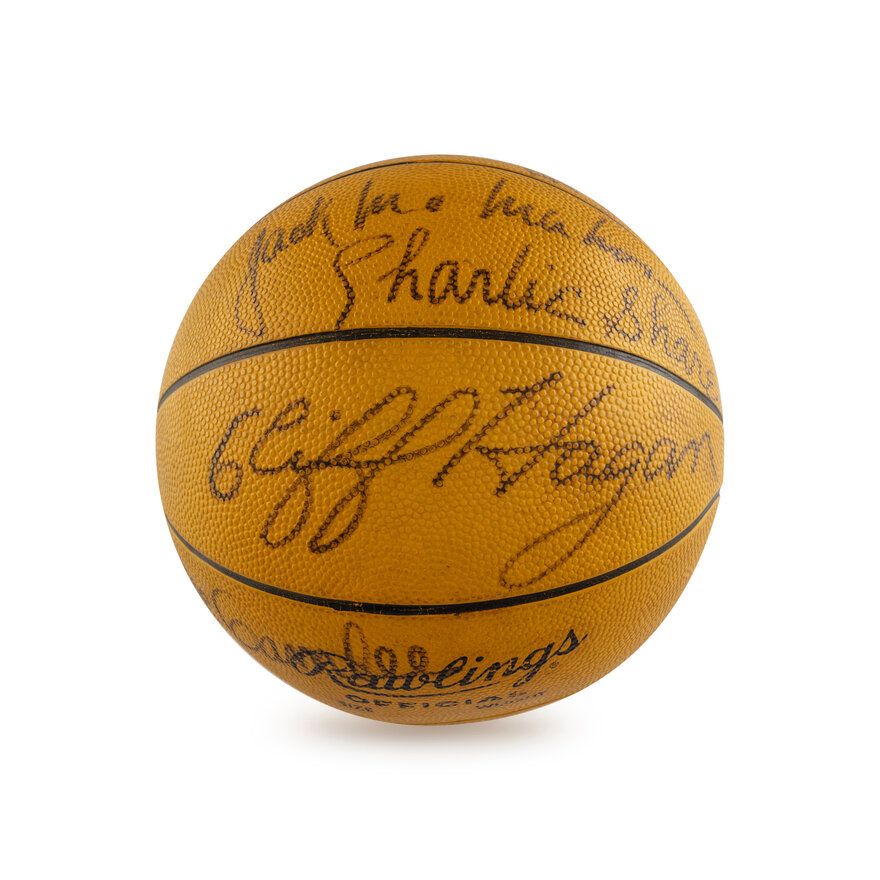 Jack McMahon
Charlie Share
Cliff Hagan
Rawlings
®
OFFICIAL
SIZE